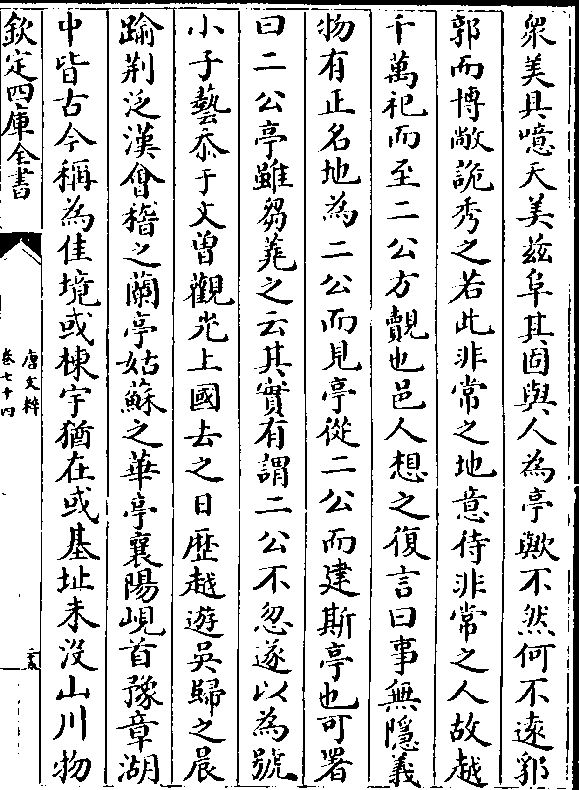 衆美具噫天美兹阜其固與人為亭歟不然何不遠郛
郭而博敞詭秀之若此非常之地意待非常之人故越
千萬祀而至二公方覿也邑人想之復言曰事無隱義
物有正名地為二公而見亭從二公而建斯亭也可署
曰二公亭雖芻蕘之云其實有謂二公不忽遂以為號
小子藝忝于文曾觀光上國去之日歴越遊吳歸之晨
踰荆泛漢會稽之蘭亭姑蘇之華亭襄陽峴首豫章湖
中皆古今稱為佳境或棟宇猶在或基址未沒山川物
欽定四庫全書
唐文粹
卷七十四